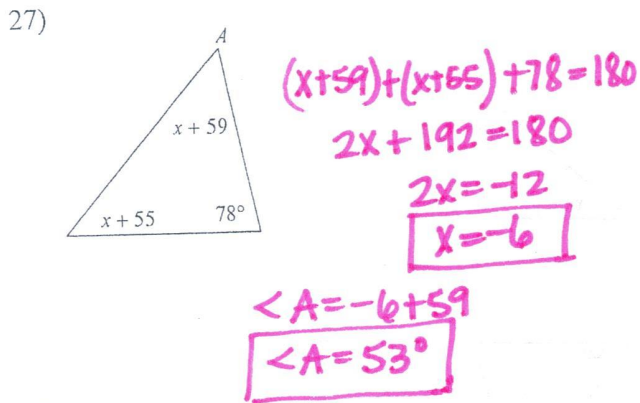 27)
A
x + 59
x + 55
78°
(x+59)+(x+55)+78=180
2x+192=180
2x=-12
x=-6
<A=-6+59
<A=53°